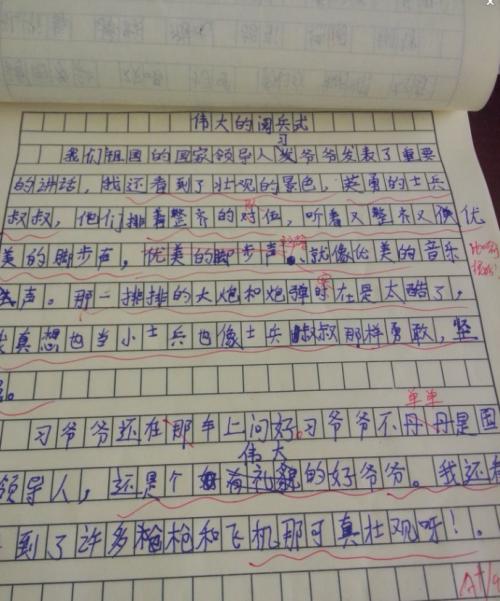 伟大的阅兵式
我们祖国的国家领导人习爷爷发表了重要
的讲话，我还看到了壮观的景色，英勇的士兵
叔叔，他们排着整齐的对伍，听着又整齐又优
美的脚步声，优美的脚步声就像优美的音乐
声。那一排排的大炮和炮弹实在是太酷了，
真想也当小士兵也像士兵叔叔那样勇敢，坚
习爷爷还在那车上问好。习爷爷不单单是国
领导人，还是个伟大有礼貌的好爷爷。我还
到了许多枪和飞机那可真壮观呀！。
A+